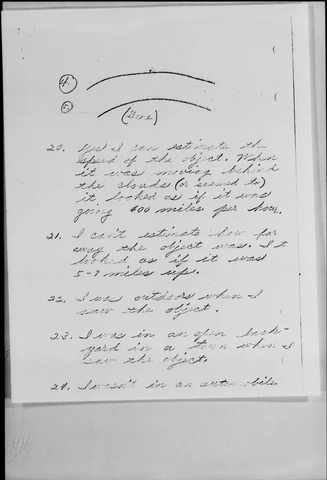 4.
5.
(Gone)
20. Yes I can estimate the
speed of the object. When
it was moving behind
the clouds (or seemed to)
it looked as if it was
going 400 miles per hour.
21. I can't estimate how far
away the object was. It
looked as if it was
5-7 miles up.
22. I was outdoors when I
saw the object.
23. I was in an open back-
yard in a town when I
saw the object.
24. I wasn't in an automobile